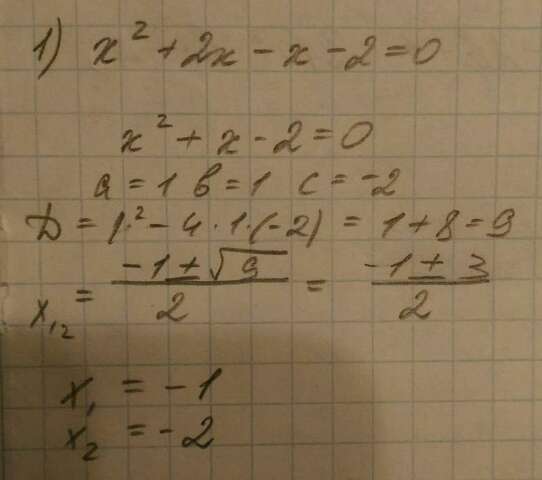 1) x² + 2x - x - 2 = 0
x² + x - 2 = 0
a = 1 b = 1 c = -2
D = 1² - 4 · 1 · (-2) = 1 + 8 = 9
x₁₂ = (-1 ± √9)/2 = (-1 ± 3)/2
x₁ = -1
x₂ = -2